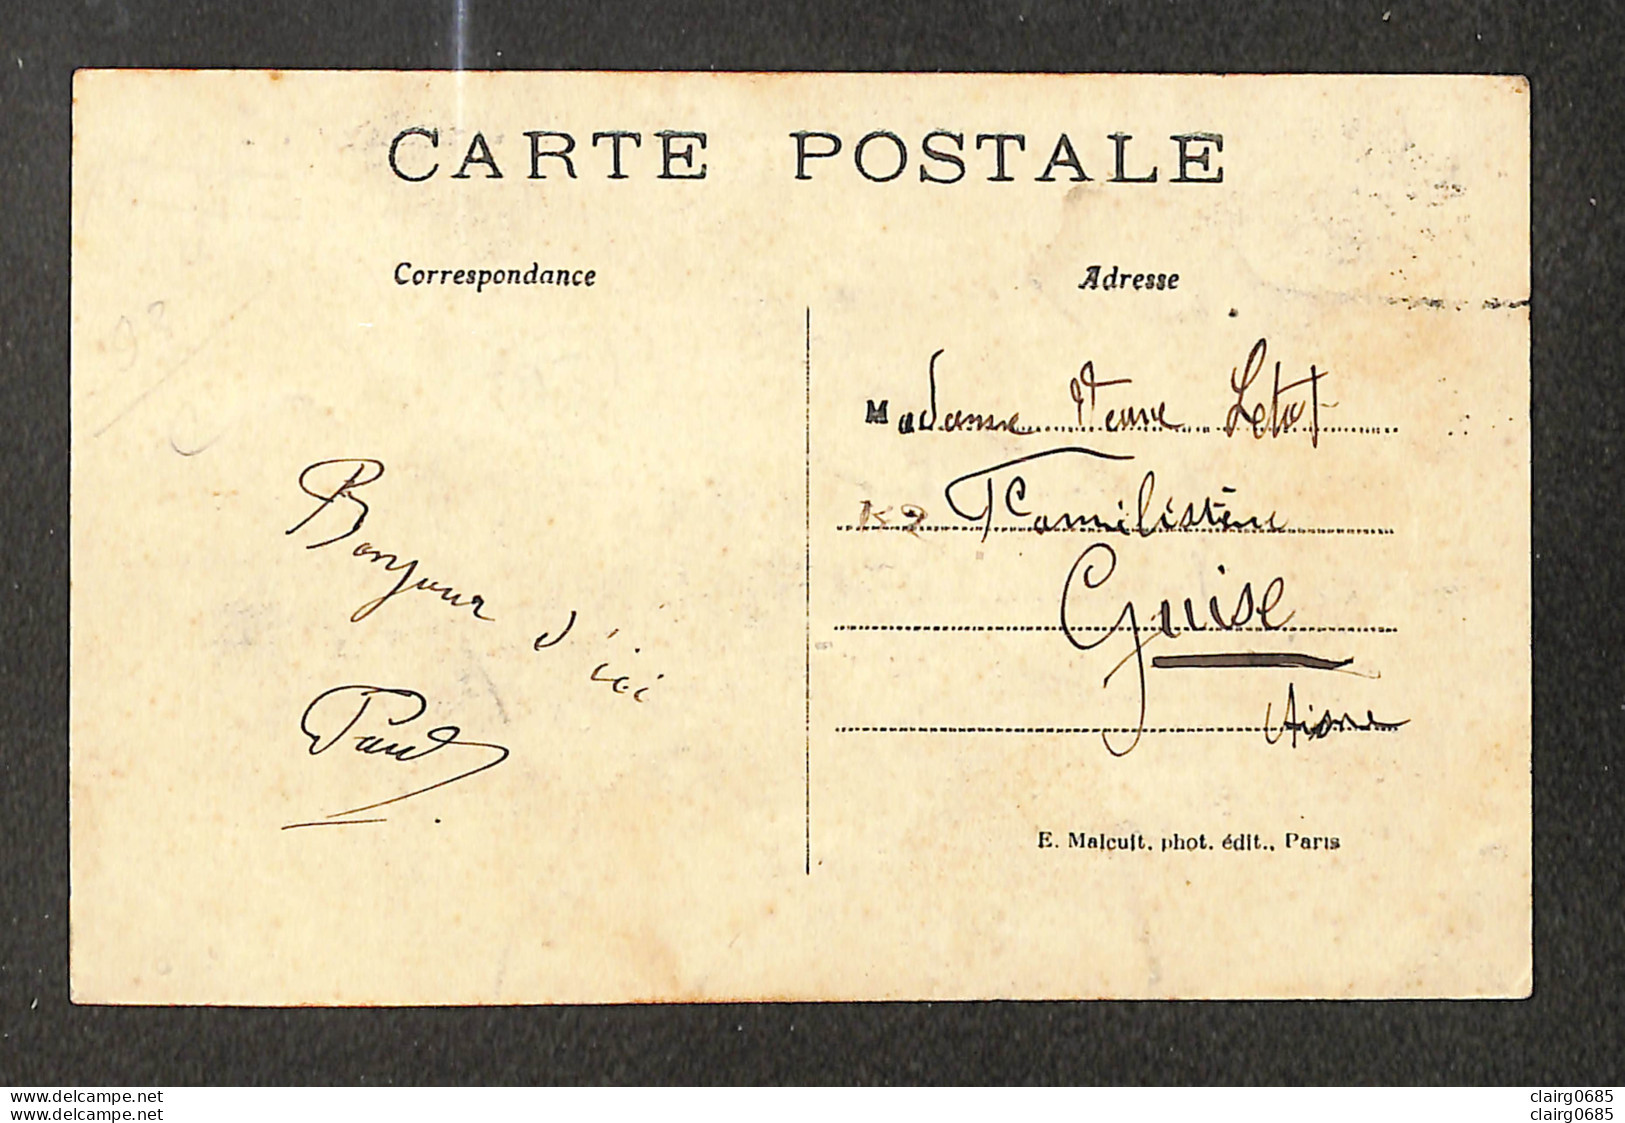 CARTE POSTALE
Correspondance
Bonjour d'ici
Paul
Adresse
Madame Veuve Letot
Familistère
Guise
Aisne
E. Malcuit, phot. édit., Paris
delcampe.net
delcampe.net
clairg0685
clairg0685